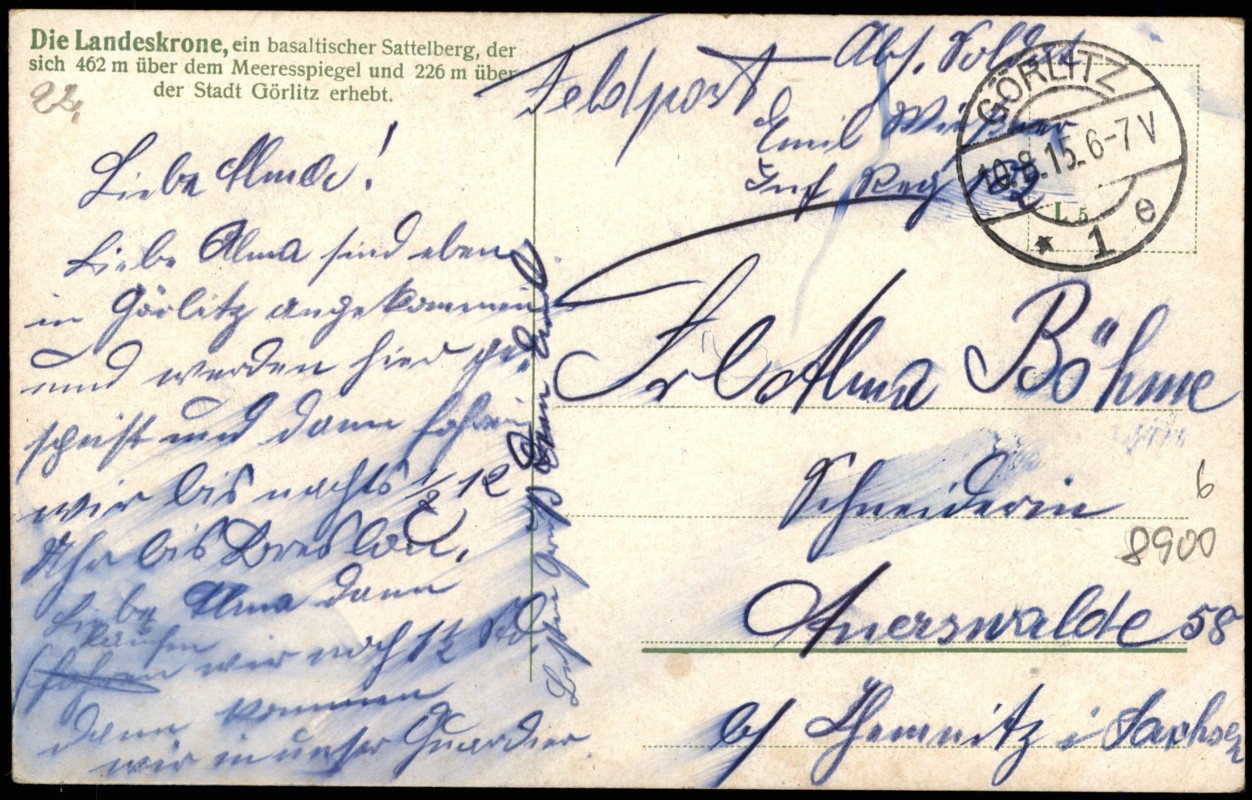 Die Landeskrone, ein basaltischer Sattelberg, der
sich 462 m über dem Meeresspiegel und 226 m über
der Stadt Görlitz erhebt.
22,
Liebe Alma!
Liebe Alma sind eben
in Görlitz angekommen
und werden hier ge
speist und dann fahren
wir bis nachts 1/2 12
Uhr bis Breslau.
Liebe Alma dann
laufen
fahren wir noch 1 1/2 Std
dann kommen
wir in unser Quardier.
Gruß Dein Emil
Feldpost
Abs. Soldat
Emil
Inf Reg
GÖRLITZ
10.8.15.6-7V
* 1 e
L 5
Frl Alma Böhme
Schneiderin
Auerswalde 58
b/ Chemnitz i Sachsen
6
8900